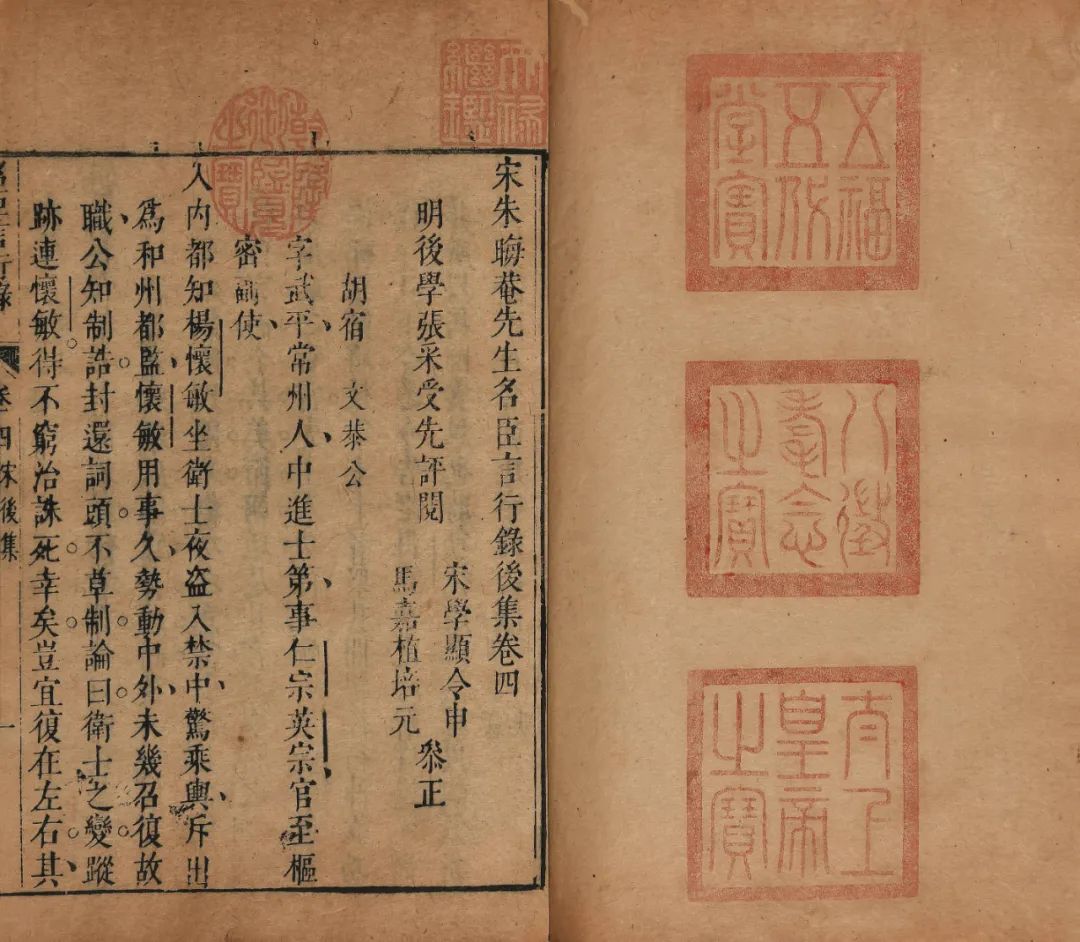 五福
五代
堂寶
八徵
耄念
之寶
太上
皇帝
之寶
天祿
繼鑑
乾隆
御覽
之寶
宋朱晦菴先生名臣言行錄後集卷四
明後學張采受先評閱
宋學顯令申
馬嘉植培元
叅正
胡宿 文恭公
字武平常州人中進士第事仁宗英宗官至樞
密副使
入內都知楊懷敏坐衛士夜盜入禁中驚乘輿斥出
爲和州都監懷敏用事久勢動中外未幾召復故
職公知制誥封還詞頭不草制論曰衛士之變蹤
跡連懷敏得不窮治誅死幸矣豈宜復在左右其
言行錄 卷四 宋後集 一